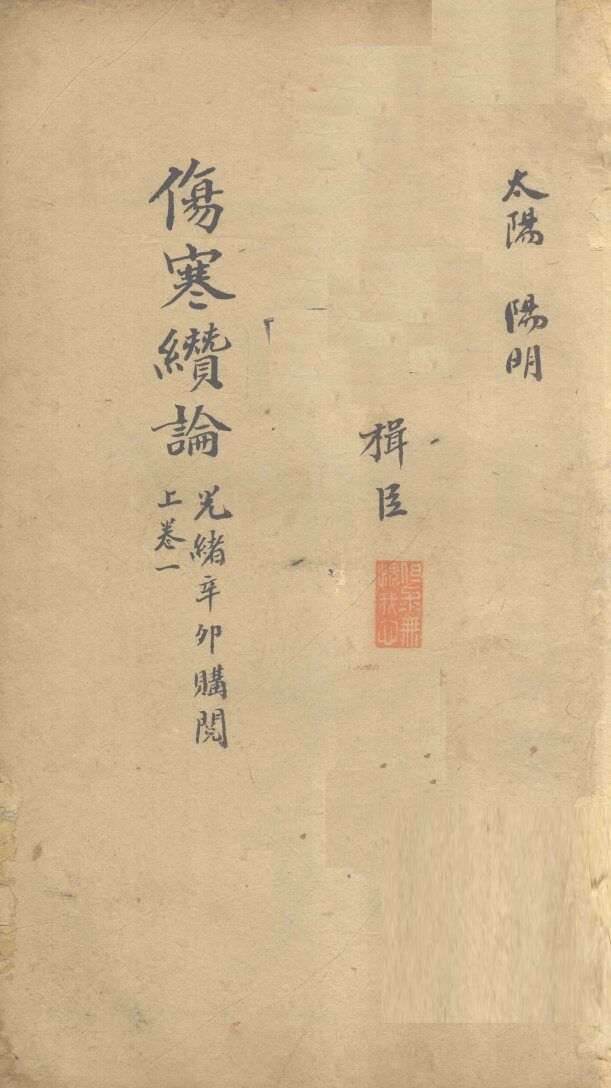 太陽 陽明
楫臣
傷寒纘論
光緒辛卯購閱
上卷一